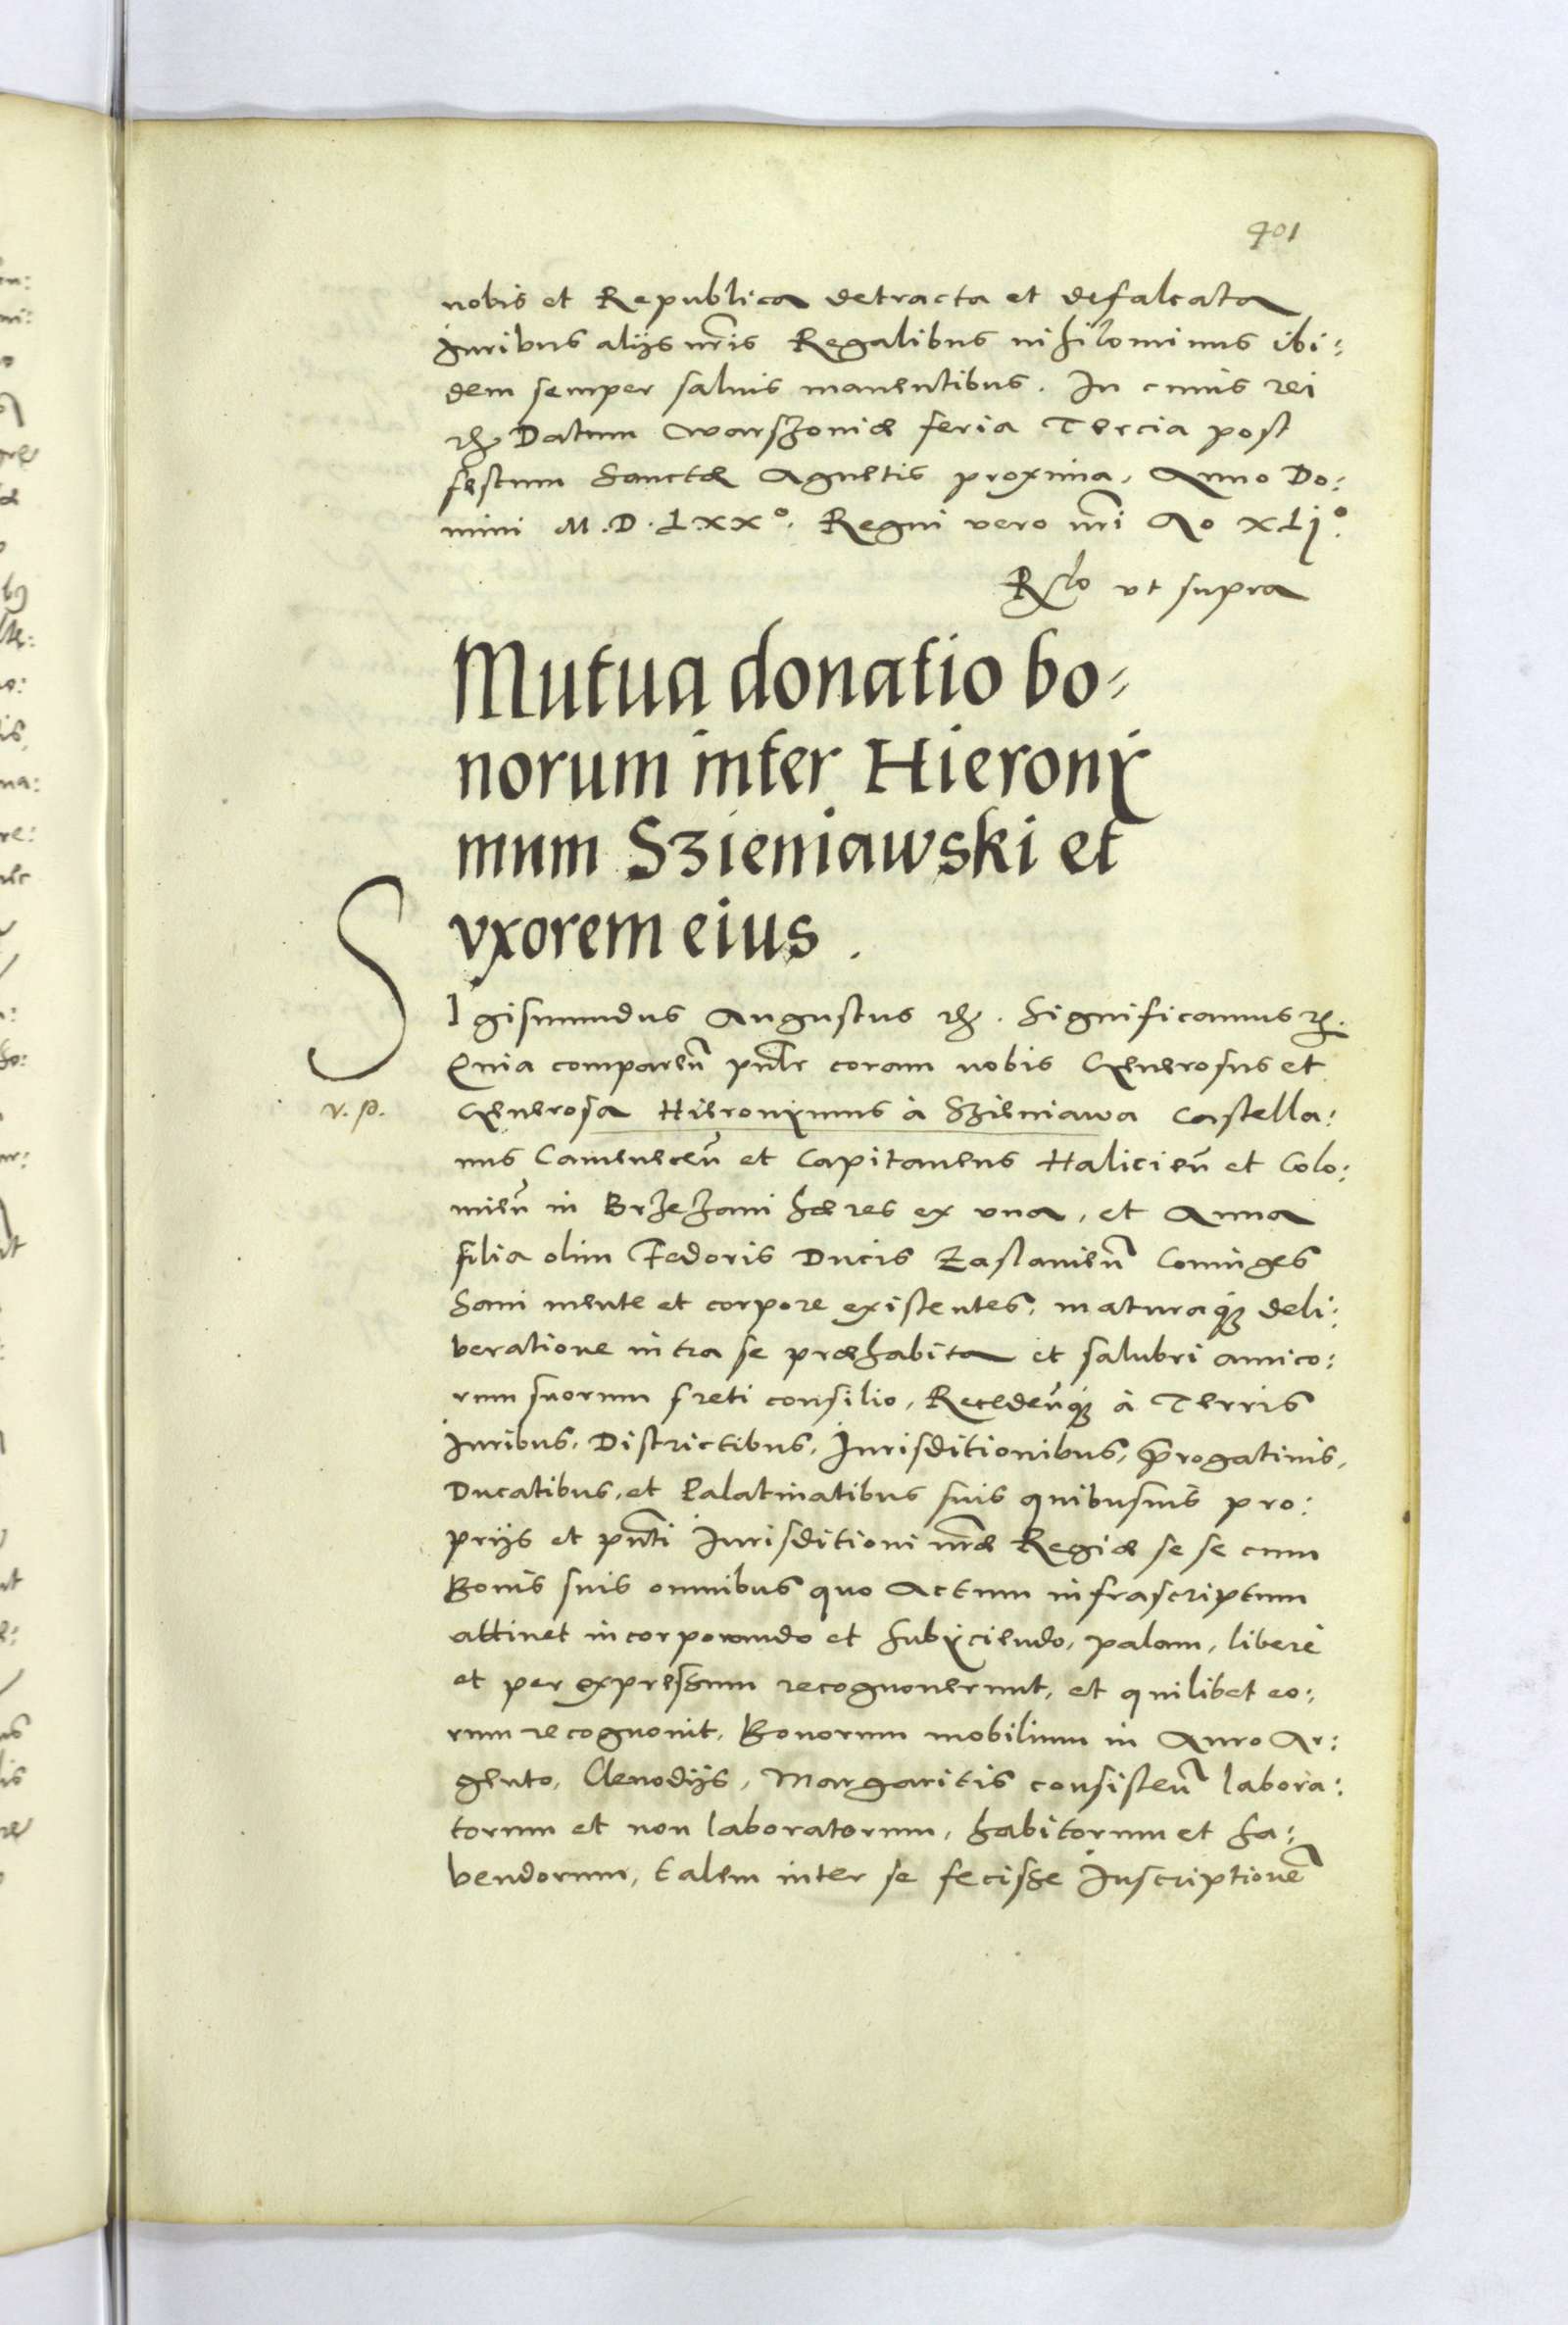 401
nobis et Republica detracta et defalcata
Juribus alijs nr̃is Regalibus nihilominus ibi:
dem semper saluis manentibus. In cuius rei
Datum Warszouiæ feria Tercia post
festum Sanctæ Agnetis proxima, Anno Do:
mini M.D.LXXº. Regni vero nr̃i Ao XLjº.
Rẽlo vt supra
Mutua donatio bo=
norum inter Hierony
mum Szieniawski et
vxorem eius.
SIgismundus Augustus Significamus
Quia compareñ pñtr coram nobis Generosus et
v. p.
Generosa Hieronymus à Szieniawa Castella:
nus Cameneceñ et Capitaneus Halicieñ et Colo:
mieñ in Brzezani hæres ex vna, et Anna
filia olim Fedoris Ducis Zaslauieñ Coniuges
Sani mente et corpore existentes, maturaq; deli:
beratione intra se præhabita et salubri amico:
rum suorum freti consilio, Recedeñq; à Terris
Juribus, Districtibus, Jurisditionibus, p̃rogatiuis,
Ducatibus, et Palatinatibus suis quibusuis pro:
prijs et pñti Jurisditioni nr̃æ Regiæ se se cum
Bonis suis omnibus quo Actum infrascriptum
attinet incorporando et subyciendo, palam, liberè
et per expressum recognouerunt, et quilibet eo:
rum recognouit, Bonorum mobilium in Auro Ar:
gento, Clenodijs, Margaritis consisteñ labora:
torum et non laboratorum, habitorum et ha:
bendorum, talem inter se fecisse Inscriptionẽ